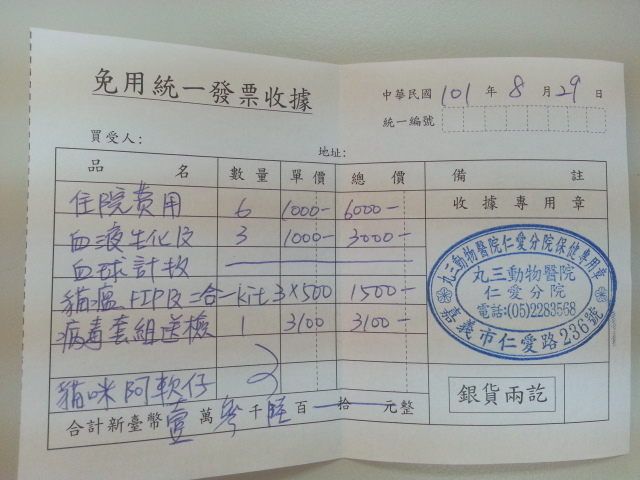 免用統一發票收據
中華民國 101 年 8 月 29 日
統一編號
買受人：
地址：
品 名 數 量 單 價 總 價 備 註
住院費用 6 1000- 6000-
收據專用章
血液生化及 3 1000- 3000-
血球計數
貓瘟 FIP及二合一kit 3×500 1500-
病毒套組送檢 1 3100 3100-
貓咪阿軟仔
合計新臺幣壹萬參千陸百拾元整
丸三動物醫院仁愛分院保健專用章
丸三動物醫院
仁愛分院
電話:(05)2283568
嘉義市仁愛路236號
銀貨兩訖